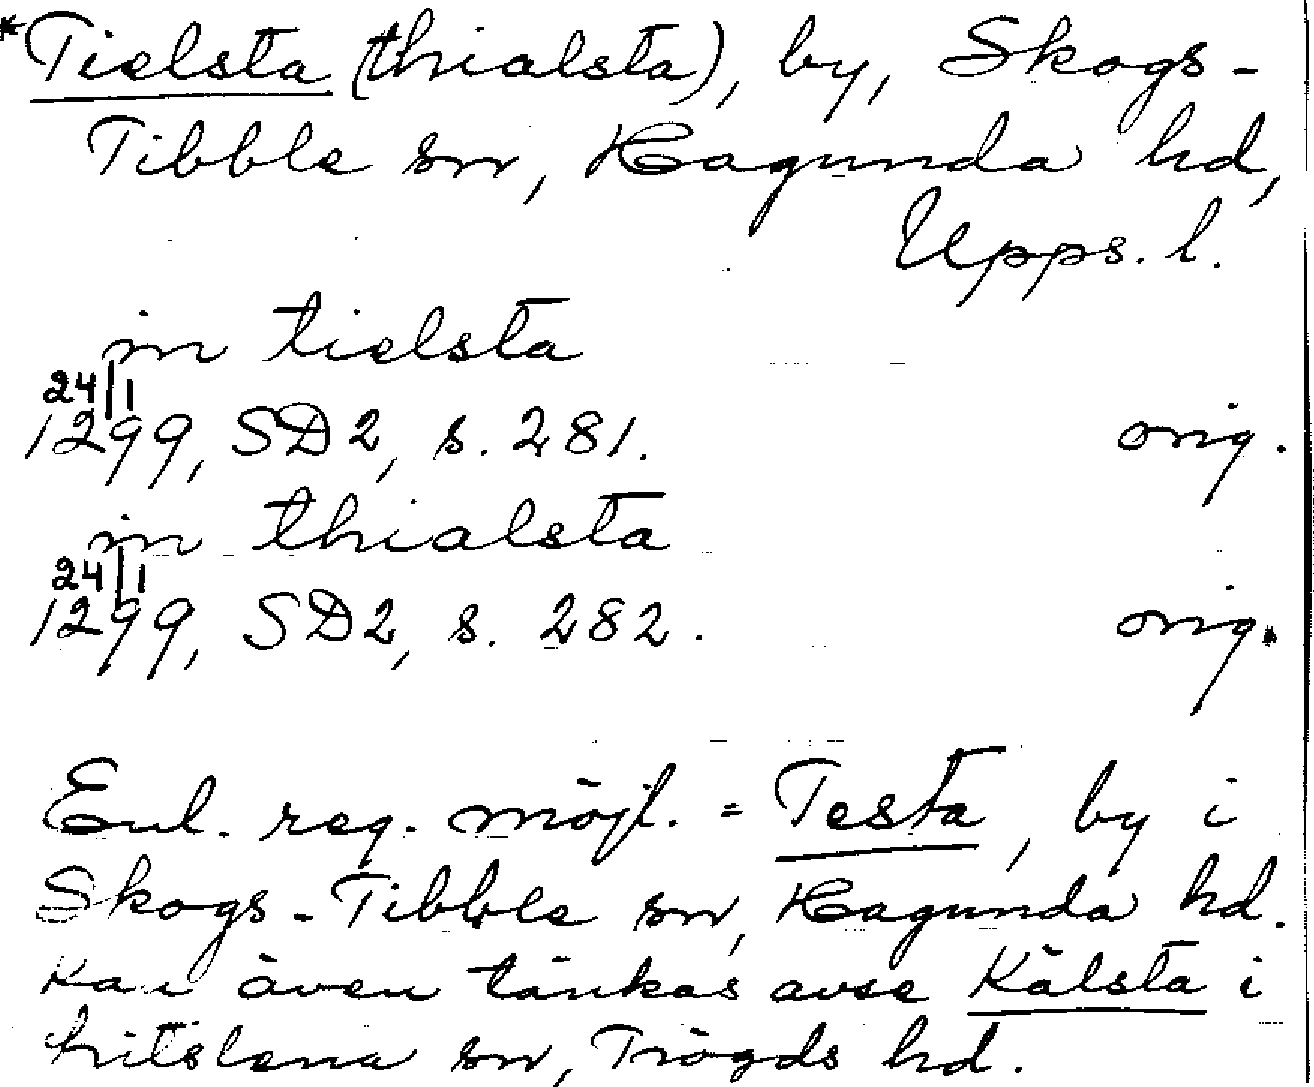 *Tielsta (thialsta), by, Skogs-
Tibble sn, Hagunda hd,
Upps. l.
in tielsta
24/1
1299, SD2, s. 281. orig.
in thialsta
24/1
1299, SD2, s. 282. orig.
Enl. reg. möjl. = Testa, by i
Skogs-Tibble sn, Hagunda hd.
Kan även tänkas avse Kälsta i
Litslena sn, Trögds hd.